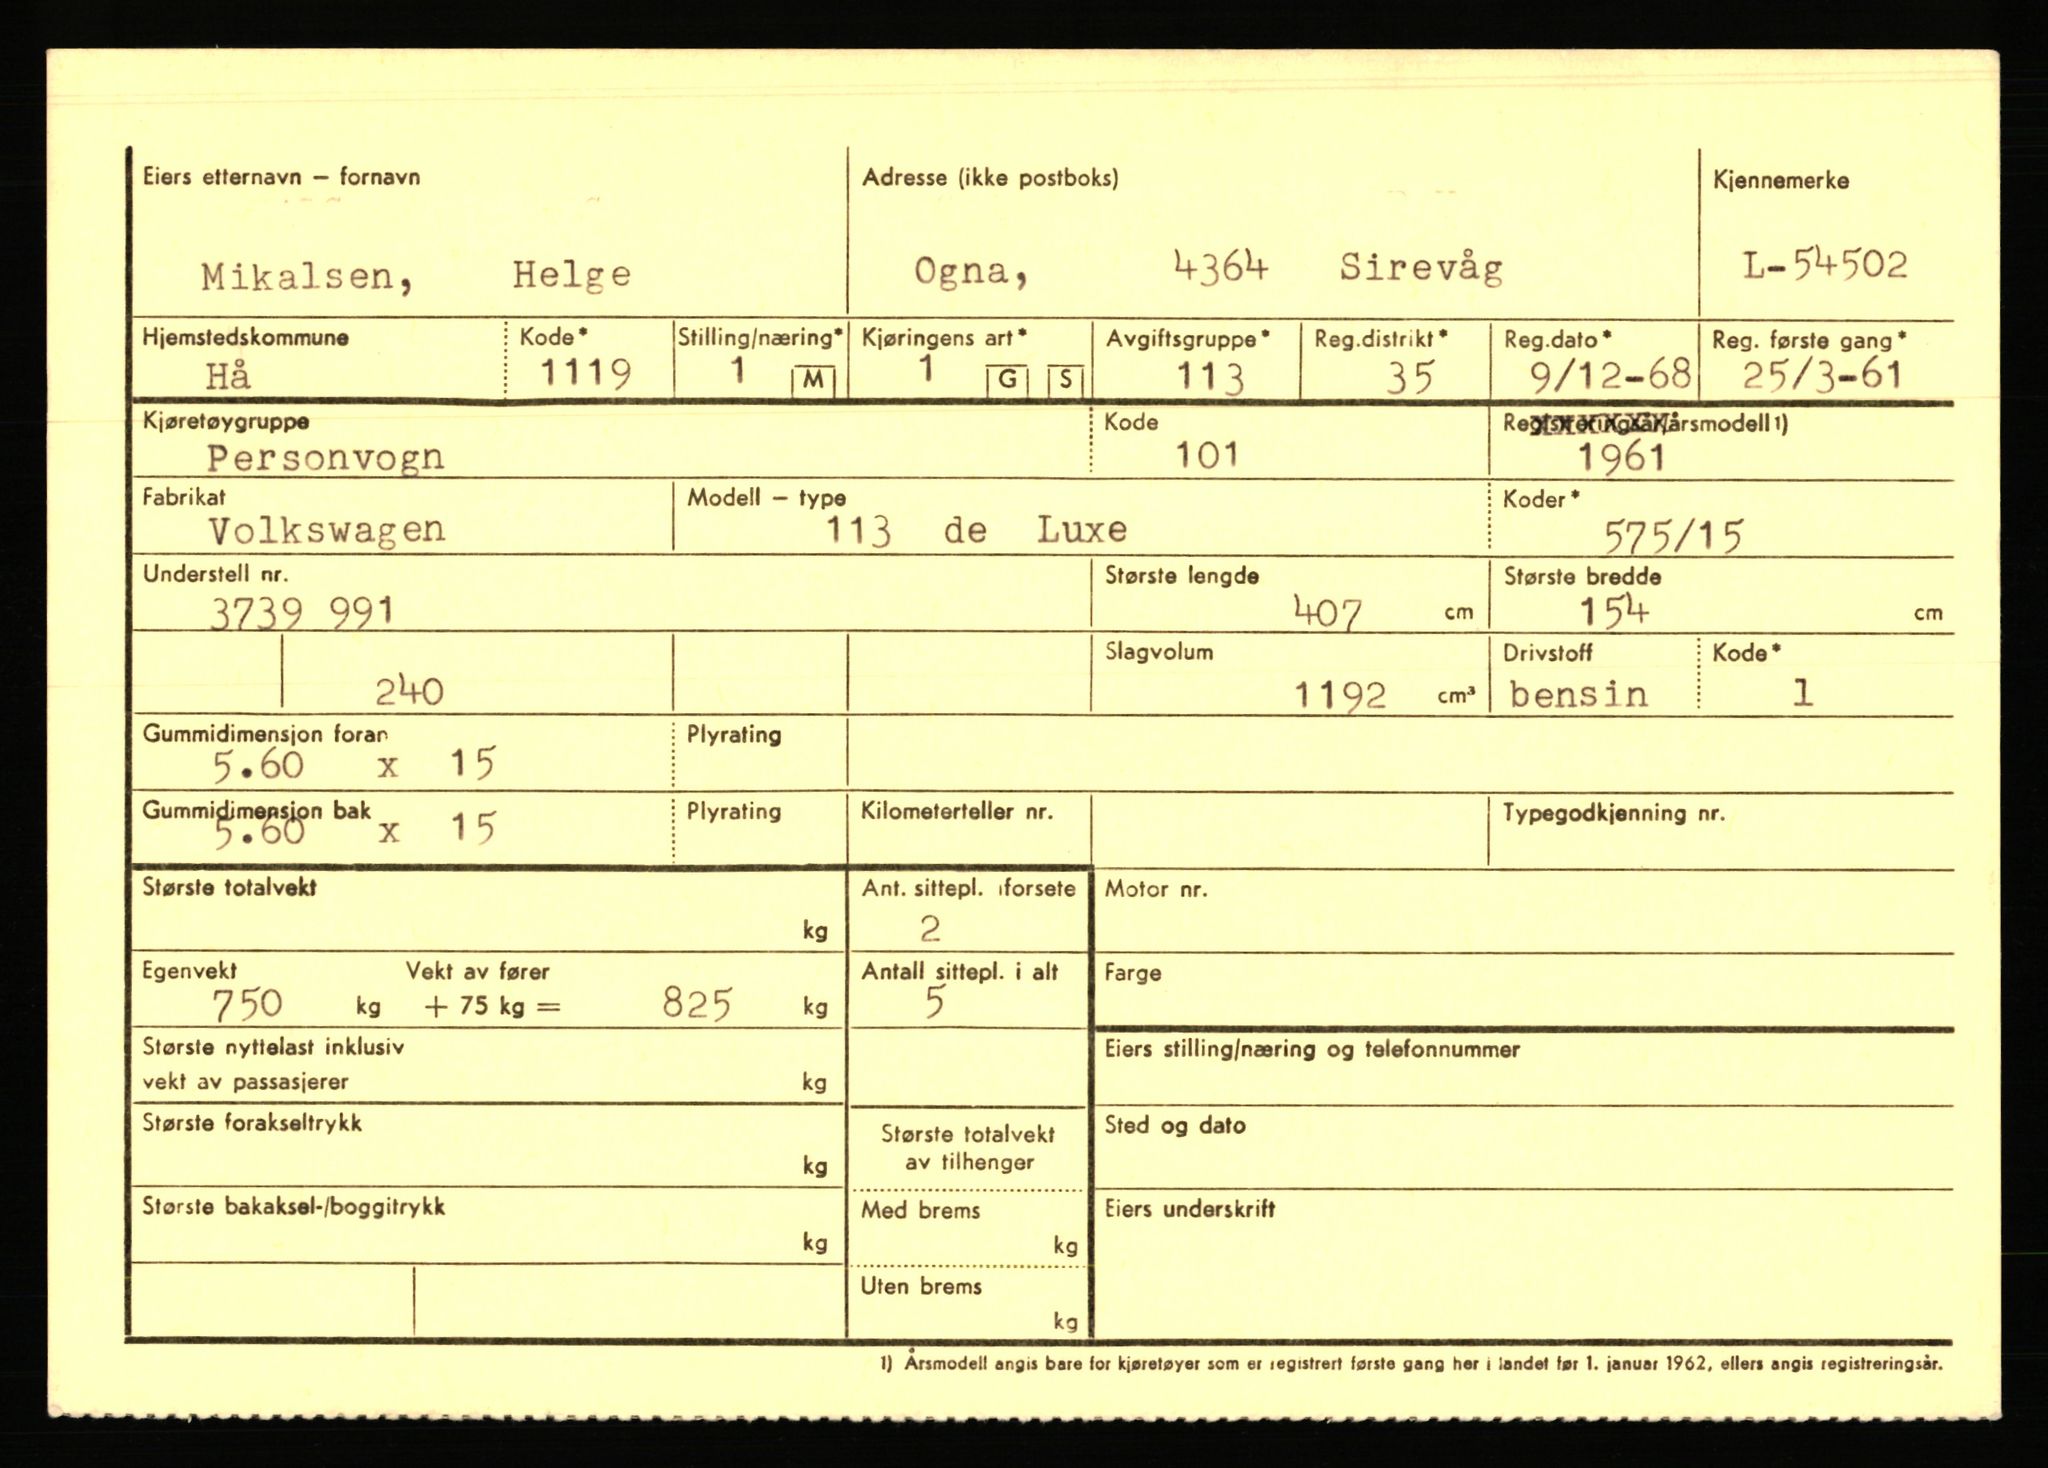 Eiers etternavn – fornavn Adresse (ikke postboks) Kjennemerke
Mikalsen, Helge Ogna, 4364 Sirevåg L-54502
Hjemstedskommune Kode* Stilling/næring* Kjøringens art* Avgiftsgruppe* Reg.distrikt* Reg.dato* Reg. første gang*
Hå 1119 1 M 1 G S 113 35 9/12-68 25/3-61
Kjøretøygruppe Kode Registreringsår/årsmodell 1)
Personvogn 101 1961
Fabrikat Modell – type Koder*
Volkswagen 113 de Luxe 575/15
Understell nr. Største lengde Største bredde
3739 991 407 cm 154 cm
Slagvolum Drivstoff Kode*
240 1192 cm³ bensin 1
Gummidimensjon foran Plyrating
5.60 x 15
Gummidimensjon bak Plyrating Kilometerteller nr. Typegodkjenning nr.
5.60 x 15
Største totalvekt Ant. sittepl. i forsete Motor nr.
kg 2
Egenvekt Vekt av fører Antall sittepl. i alt Farge
750 kg + 75 kg = 825 kg 5
Største nyttelast inklusiv Eiers stilling/næring og telefonnummer
vekt av passasjerer kg
Største forakseltrykk Sted og dato
Største totalvekt
kg av tilhenger
Største bakaksel-/boggitrykk Med brems Eiers underskrift
kg kg
Uten brems
kg
1) Årsmodell angis bare for kjøretøyer som er registrert første gang her i landet før 1. januar 1962, ellers angis registreringsår.